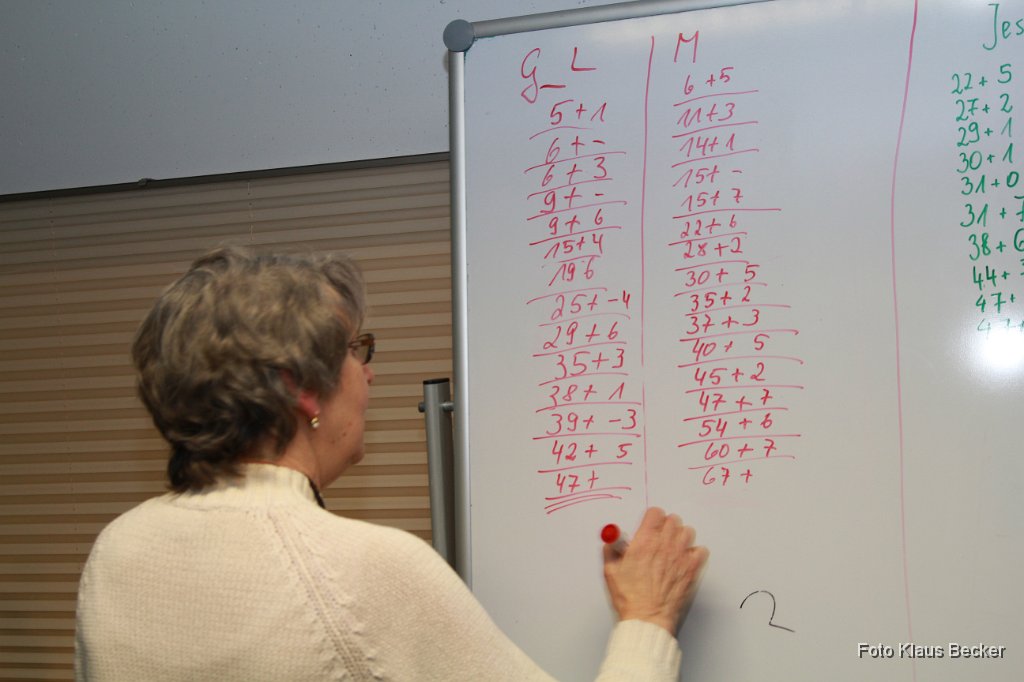 G_L
5+1
6+-
6+3
9+-
9+6
15+4
19 6
25+-4
29+6
35+3
38+1
39+-3
42+ 5
47+
M
6+5
11+3
14+1
15+-
15+7
22+6
28+2
30+ 5
35+2
37+3
40+ 5
45+2
47+7
54+6
60+7
67+
2
Jes
22+ 5
27+ 2
29+1
30+1
31+0
31+7
38+6
44+
47+
Foto Klaus Becker